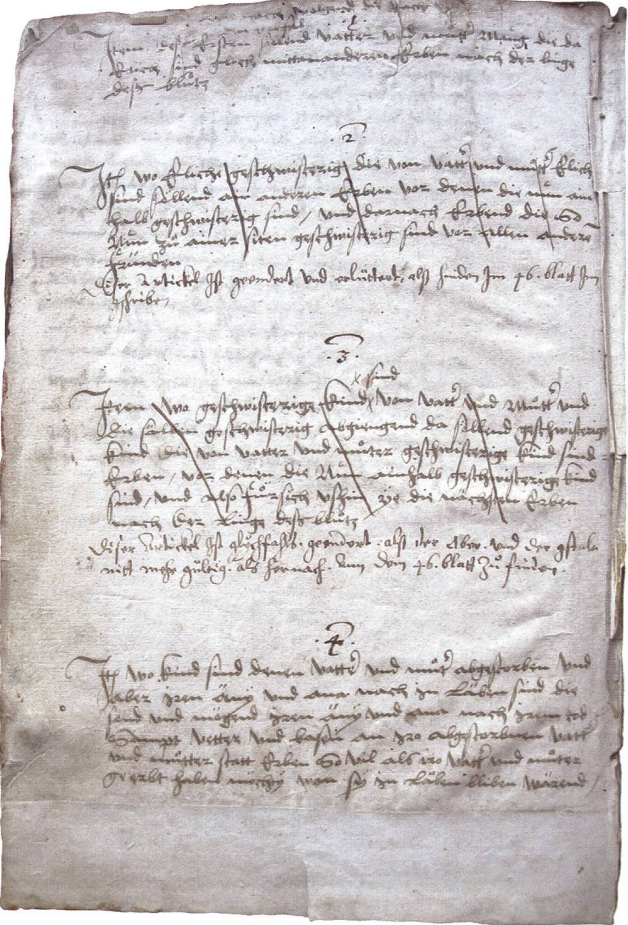 1
Item des Ersten sind vatter und mutter
Elich sind Elich mittainanderen Erben nach der linge
desz blůtz
2
Itē wo Eliche geschwisterig die von vattr und mutr Elich
sind sollend ain anderen Erben vor denen die nun ain
halb geschwisterig sind / und darnach Erbend die So
Nun zů ainer siten geschwisterig sind vor allen andere
fründen
Diser Artickel Ist geendert und erlütteret, alß finden Im 46. blatt Inn
gschriben
3
sind
Item wo geschwisterige kind / von vattr und Muttr und
die selben geschwisterig abgiengend da sollend geschwisterige
kind die von vatter und můter geschwisterige kind sind
Erben / vor denen die Nun ainhalb geschwisterige kind
sind / und also für sich ye die nächsten Erben
nach der linge desz blütz
Diser Artickel Ist geendert, alß der Aber. und der gstalt
nitt mehr gültig. als hernach. Am dem 46. blatt zů finden.
4
Itē wo kind sind denen vattr und můtr abgestorben und
aber iren äny und ana noch in Läben sind die
sond und mögend iren äny und ana nach irem tod
Sampt vetter und basen an iro abgestorbnen vattr
und můtter statt Erben So vil als iro vattr und můter
geerbt haben möchty wen sy in Läben bliben wärend /